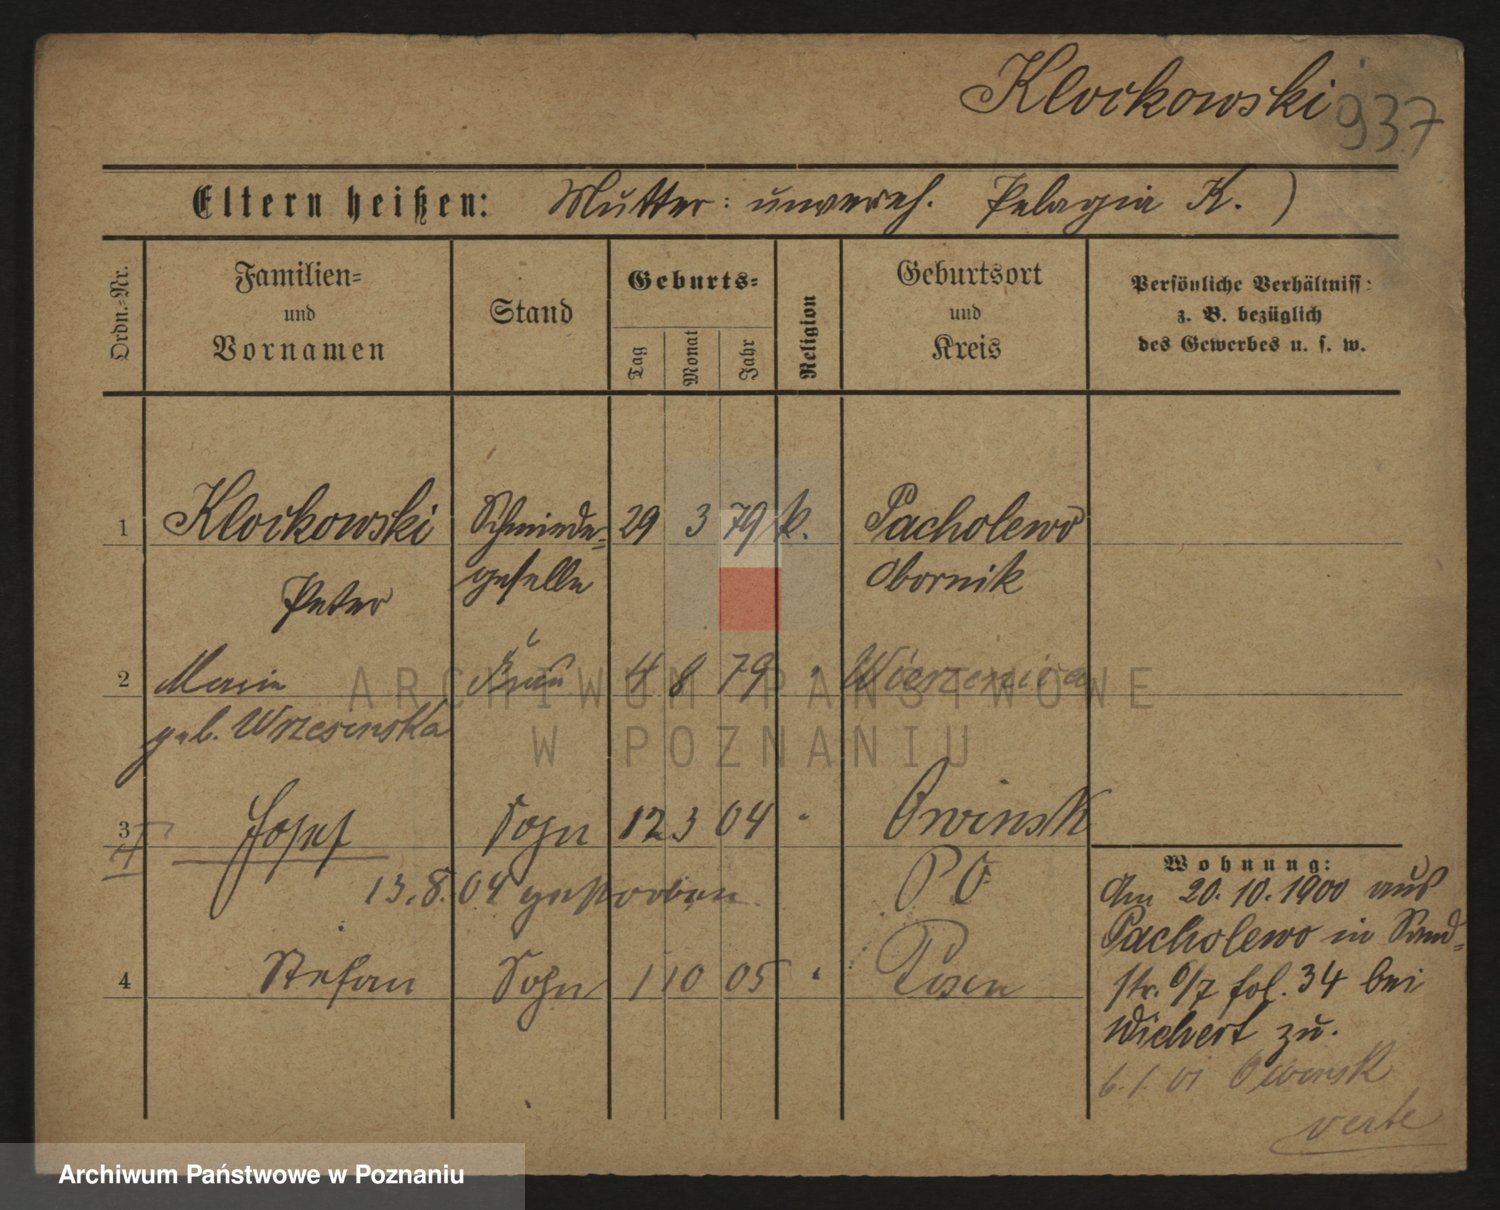 Klockowski 937
Eltern heißen: Mutter: unvereh. Pelagia K. )
Ordn.-Nr.
Familien- und Vornamen
Stand
Geburts-
Tag
Monat
Jahr
Religion
Geburtsort und Kreis
Persönliche Verhältniss: z. B. bezüglich des Gewerbes u. s. w.
1 Klockowski Schmiede- 29 3 79 k. Pacholewo
Peter geselle Obornik
2 Maria Frau 4 8 79 " Wierzenica
geb. Wrzesinska
3 Josef Sohn 12 3 04 " Owinsk
13.8.04 gestorben. P. O.
4 Stefan Sohn 1 10 05 " Posen
Wohnung:
Am 20.10.1900 aus
Pacholewo in Sand-
str. 6/7 fol. 34 bei
Wichert zu.
6.1.01 Owinsk
verte
ARCHIWUM PAŃSTWOWE
W POZNANIU
Archiwum Państwowe w Poznaniu